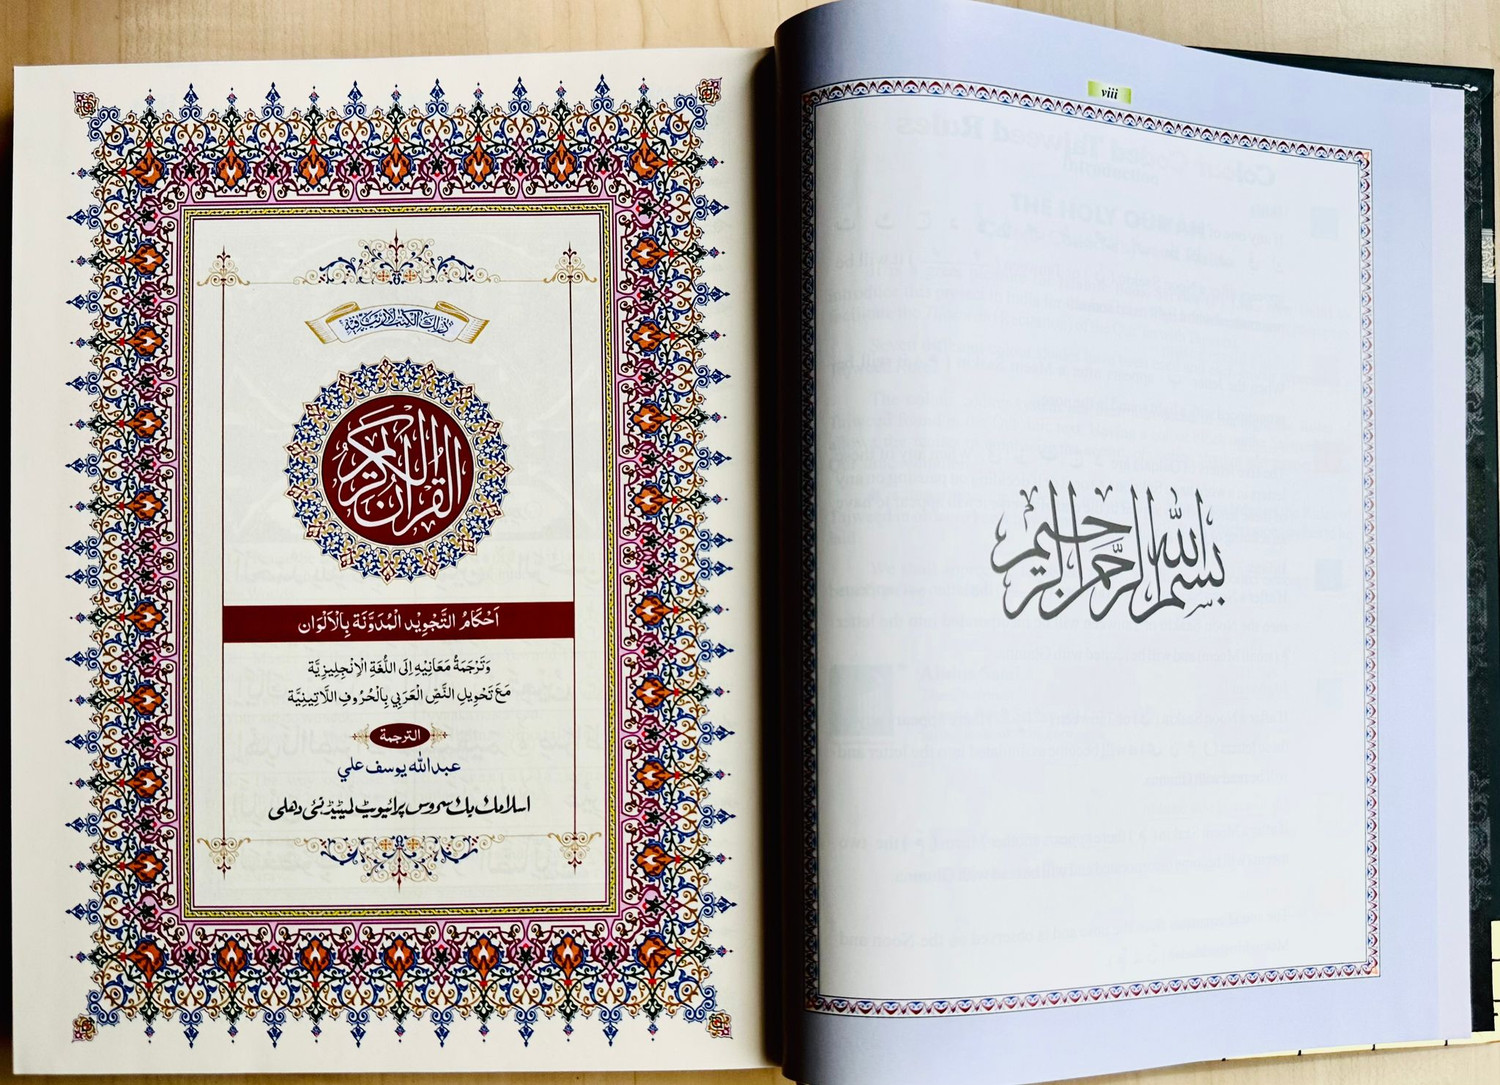 ذلك الكتب لا ريب فيه
القرآن الكريم
اَحْكَامُ التَّجْوِيْد الْمُدَوَّنَة بِالْاَلْوَان
وَتَرْجَمَةُ مَعَانِيْهِ اِلَى اللُّغَةِ الْاِنْجِلِيزِيَّة
مَعَ تَحْوِيلِ النَّصِّ الْعَرَبِي بِالْحُرُوفِ اللَّاتِينِيَّة
الترجمة
عبدالله يوسف علي
اسلامک بک سروس پرائیویٹ لمیٹڈ نئی دهلی
viii
بسم الله الرحمن الرحيم